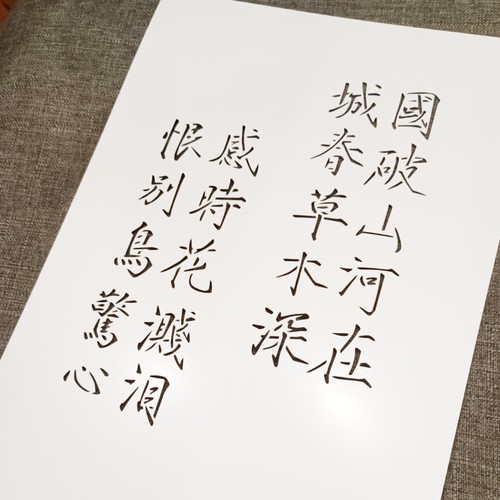 國破山河在
城春草水深
感時花濺泪
恨别鳥驚心